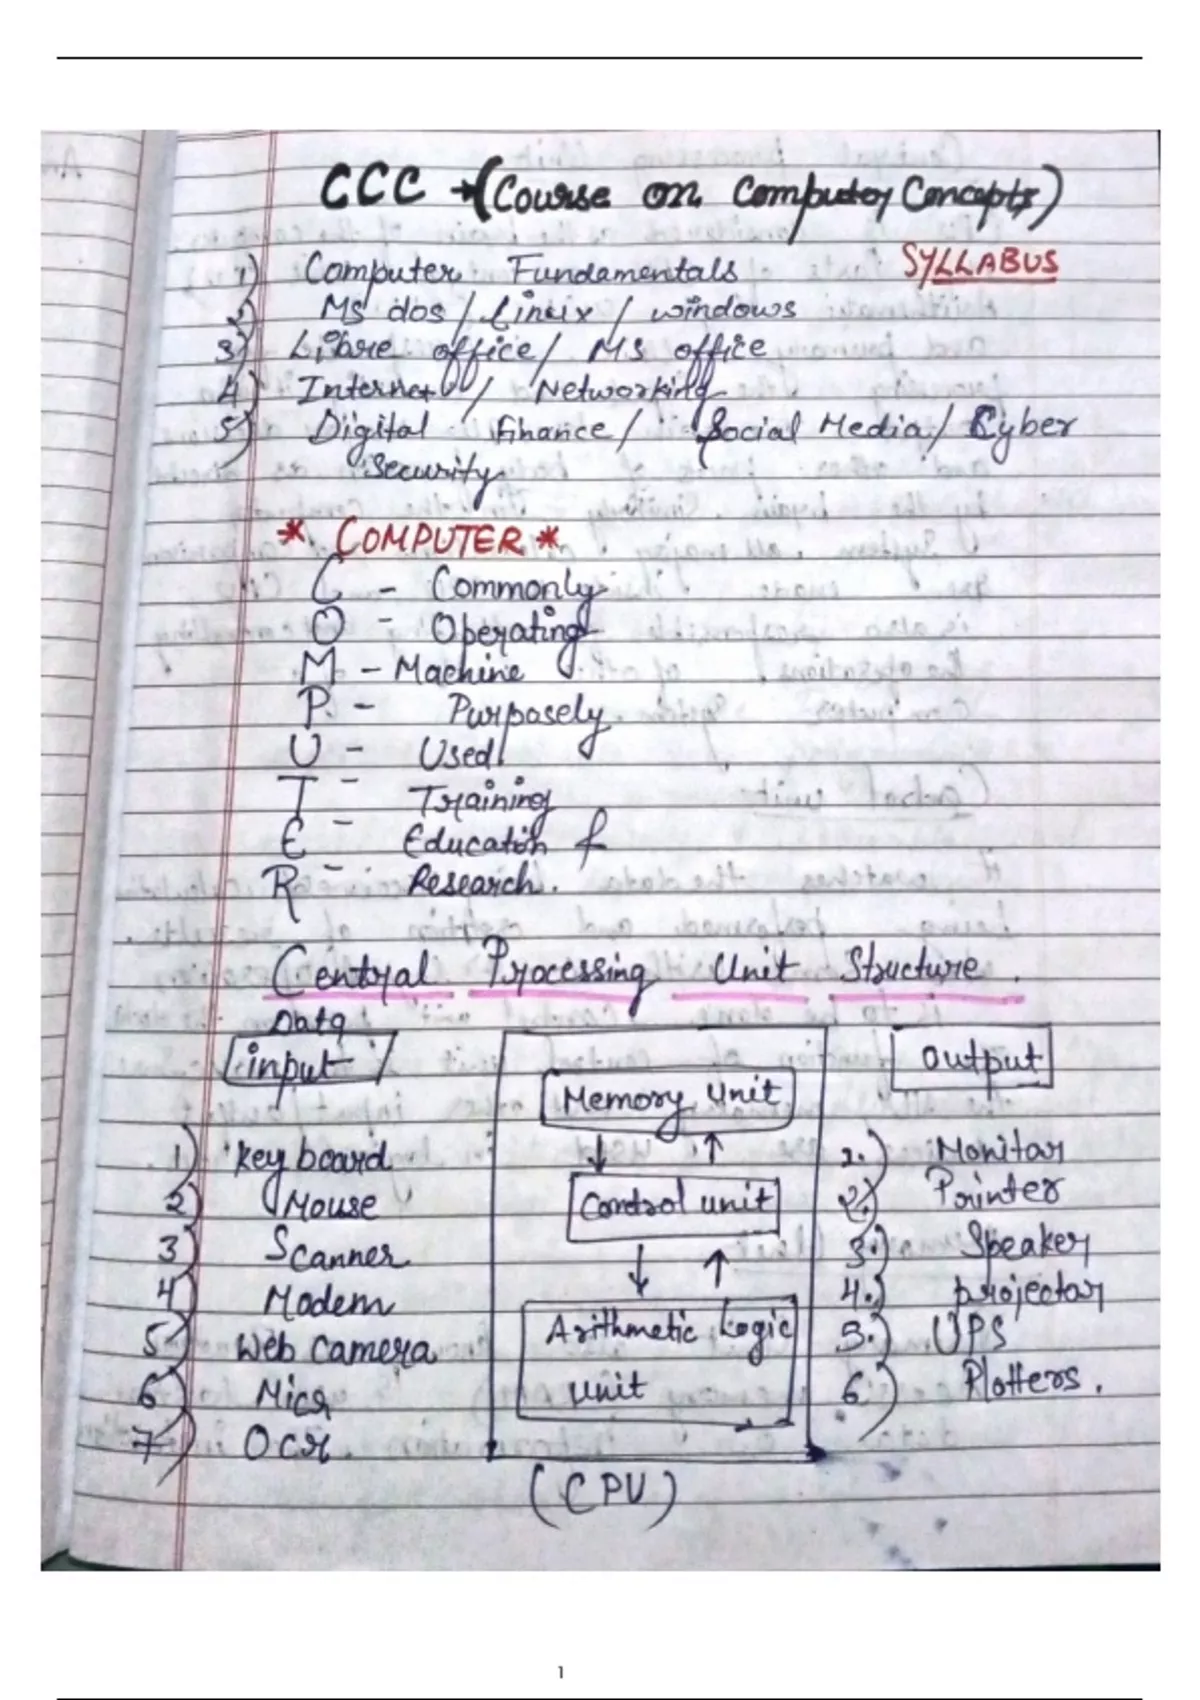 CCC → (Course on Computer Concepts)
SYLLABUS
1) Computer Fundamentals
2) Ms dos / Linix / windows
3) Libre office / MS office
4) Internet / Networking
5) Digital finance / Social Media / Cyber
security
* COMPUTER *
C - Commonly
O - Operating
M - Machine
P - Purposely
U - Used
T - Training
E - Education &
R - Research.
Central Processing Unit Structure.
Data
input
Output
Memory Unit
Control unit
Arithmetic Logic
unit
(CPU)
1) key board
2) Mouse
3) Scanner
4) Modem
5) Web camera
6) Micr
7) Ocr
1.) Monitor
2.) Printer
3.) Speaker
4.) projector
5.) UPS
6.) Plotters.
1